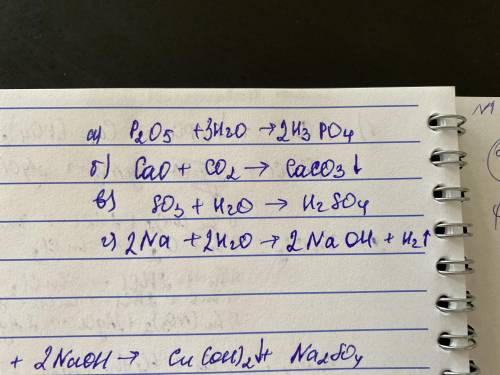 а) P₂O₅ + 3H₂O → 2H₃PO₄
б) CaO + CO₂ → CaCO₃↓
в) SO₃ + H₂O → H₂SO₄
г) 2Na + 2H₂O → 2NaOH + H₂↑
+ 2NaOH → Cu(OH)₂↓ + Na₂SO₄